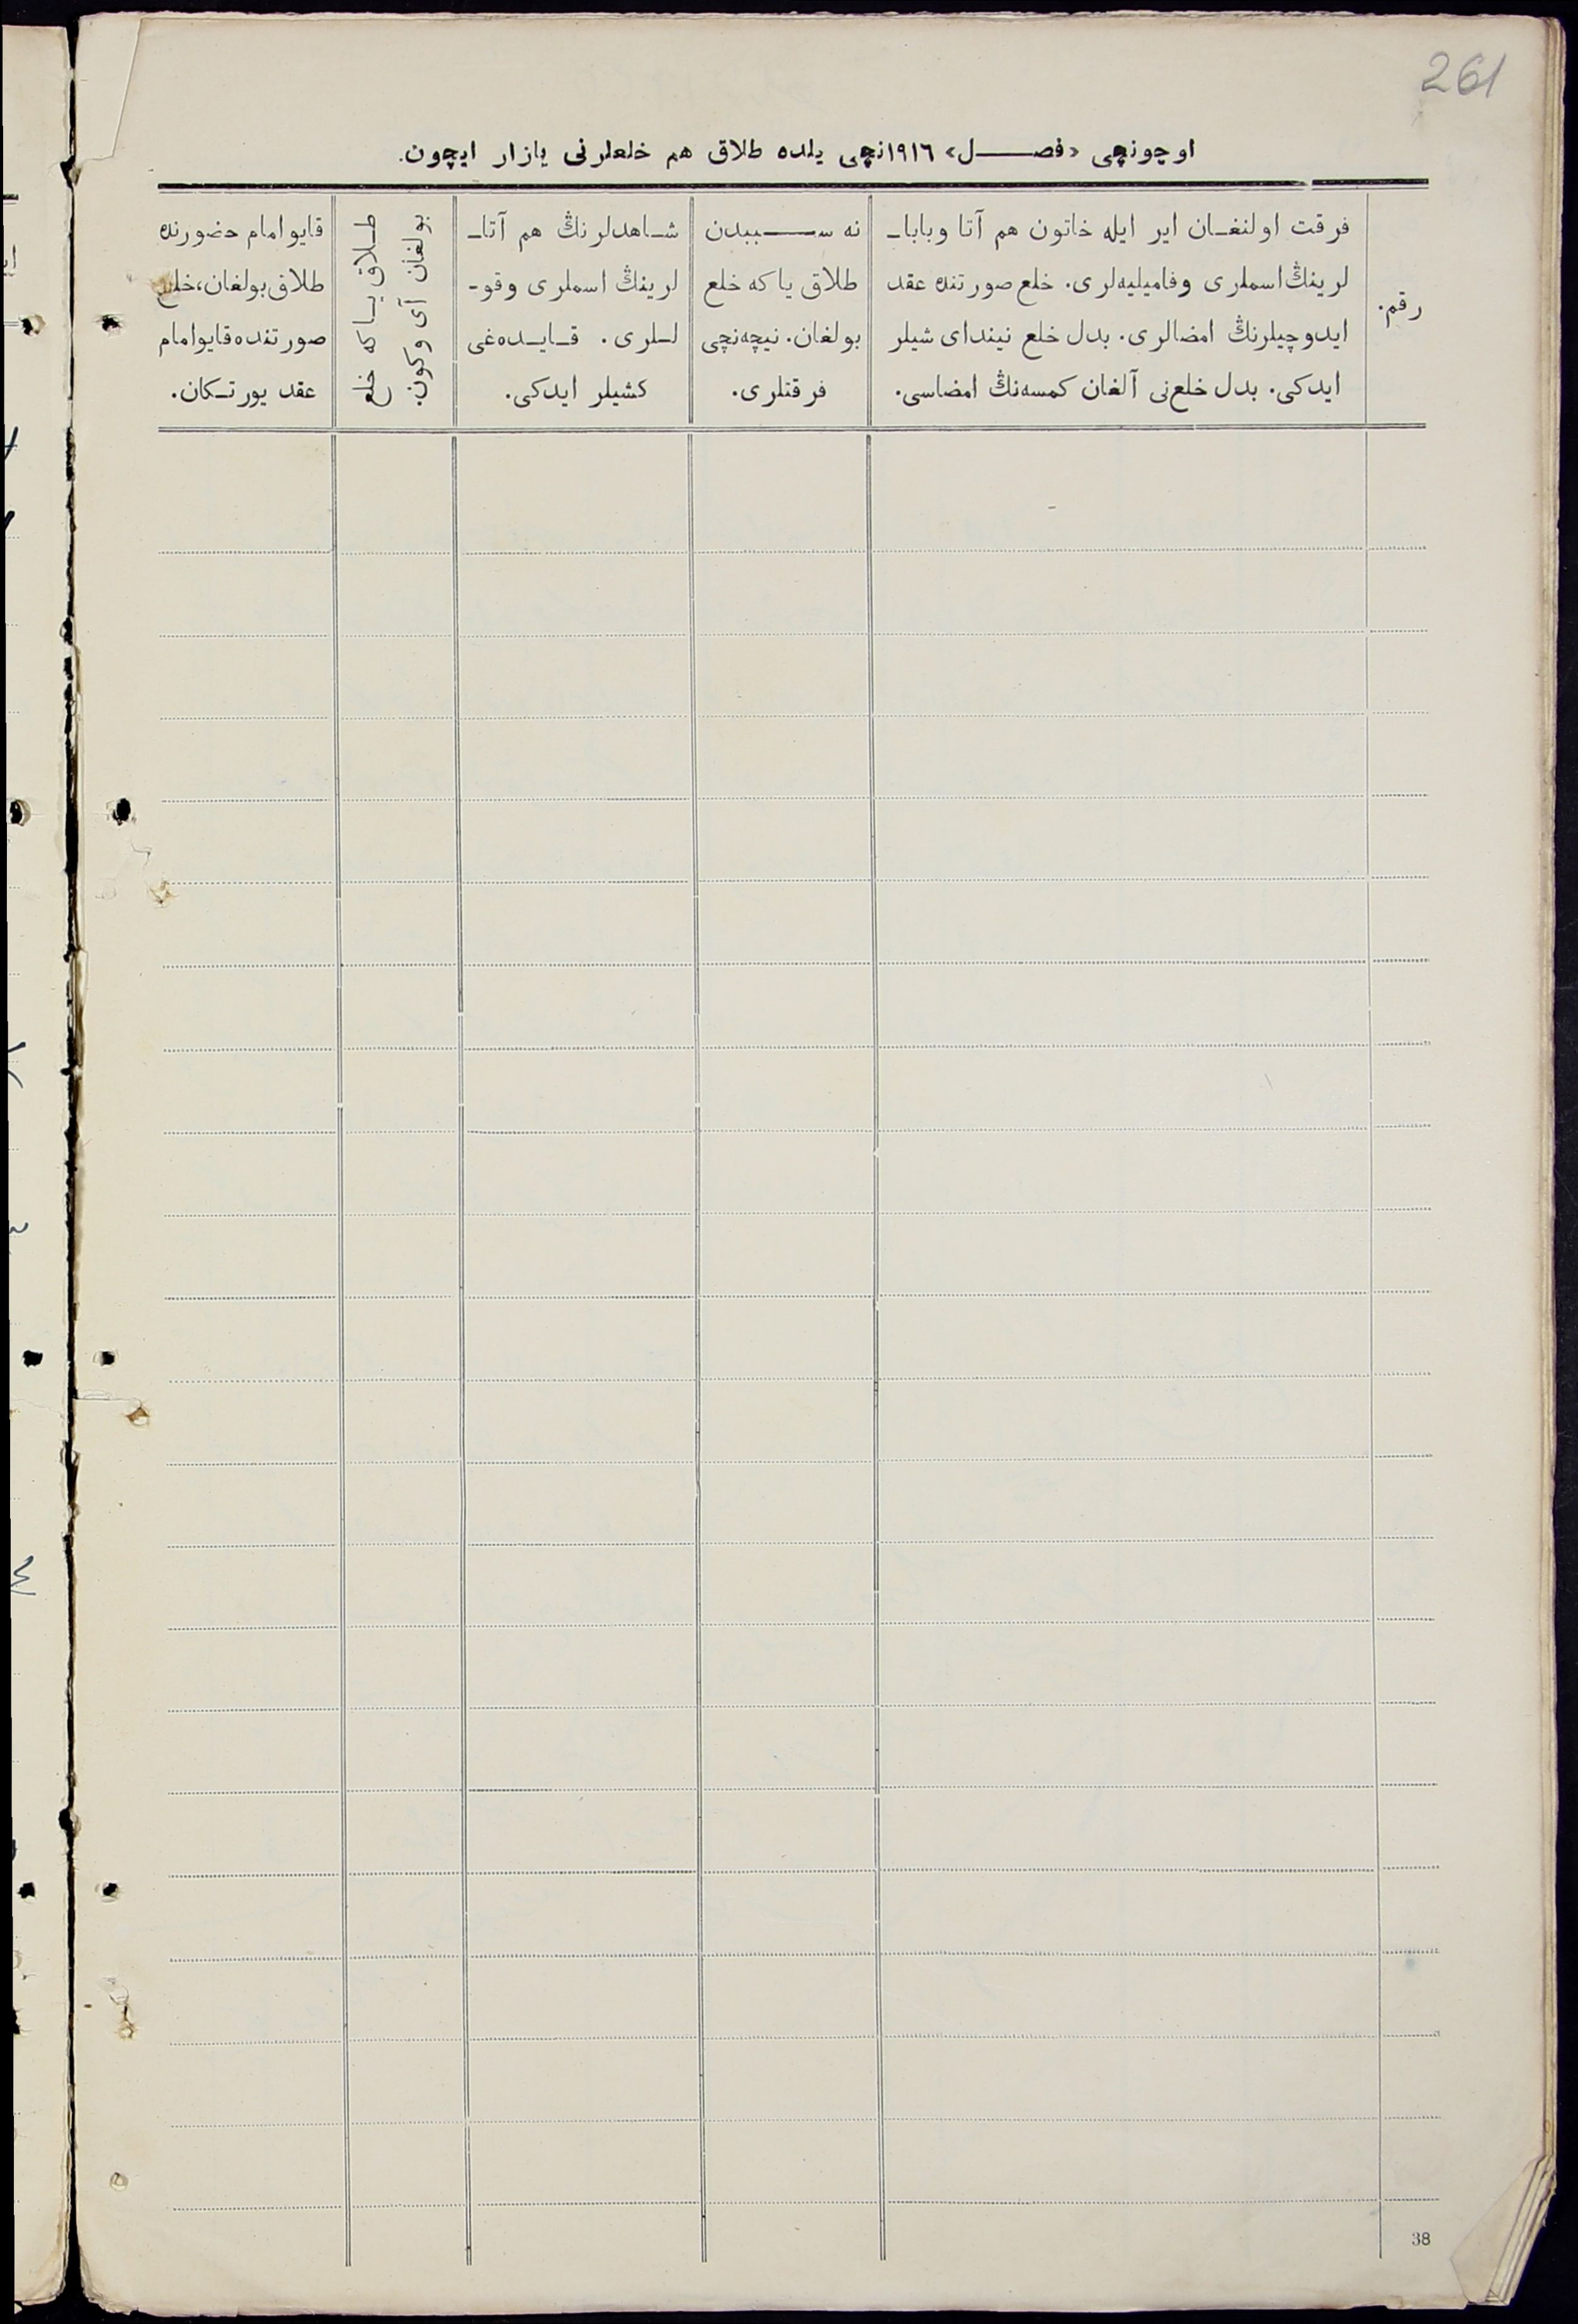 261
اوچونچی «فصل» ١٩١٦نچی یلده طلاق هم خلعلرنی یازار ایچون.
رقم.
فرقت اولنغان ایر ایله خاتون هم آتا وبابا-
لرینڭ اسملری وفامیلیه‌لری. خلع صورتنده عقد
ایدوچیلرنڭ امضالری. بدل خلع نیندای شیلر
ایدکی. بدل خلع‌نی آلغان کمسه‌نڭ امضاسی.
نه سببدن
طلاق یاکه خلع
بولغان. نیچه‌نچی
فرقتلری.
شاهدلرنڭ هم آتا-
لرینڭ اسملری وقو-
للری. قایده‌غی
کشیلر ایدکی.
طلاق یاکه خلع
بولغان آی وکون.
قایو امام حضورنده
طلاق بولغان، خلع
صورتنده قایو امام
عقد یورتکان.
38